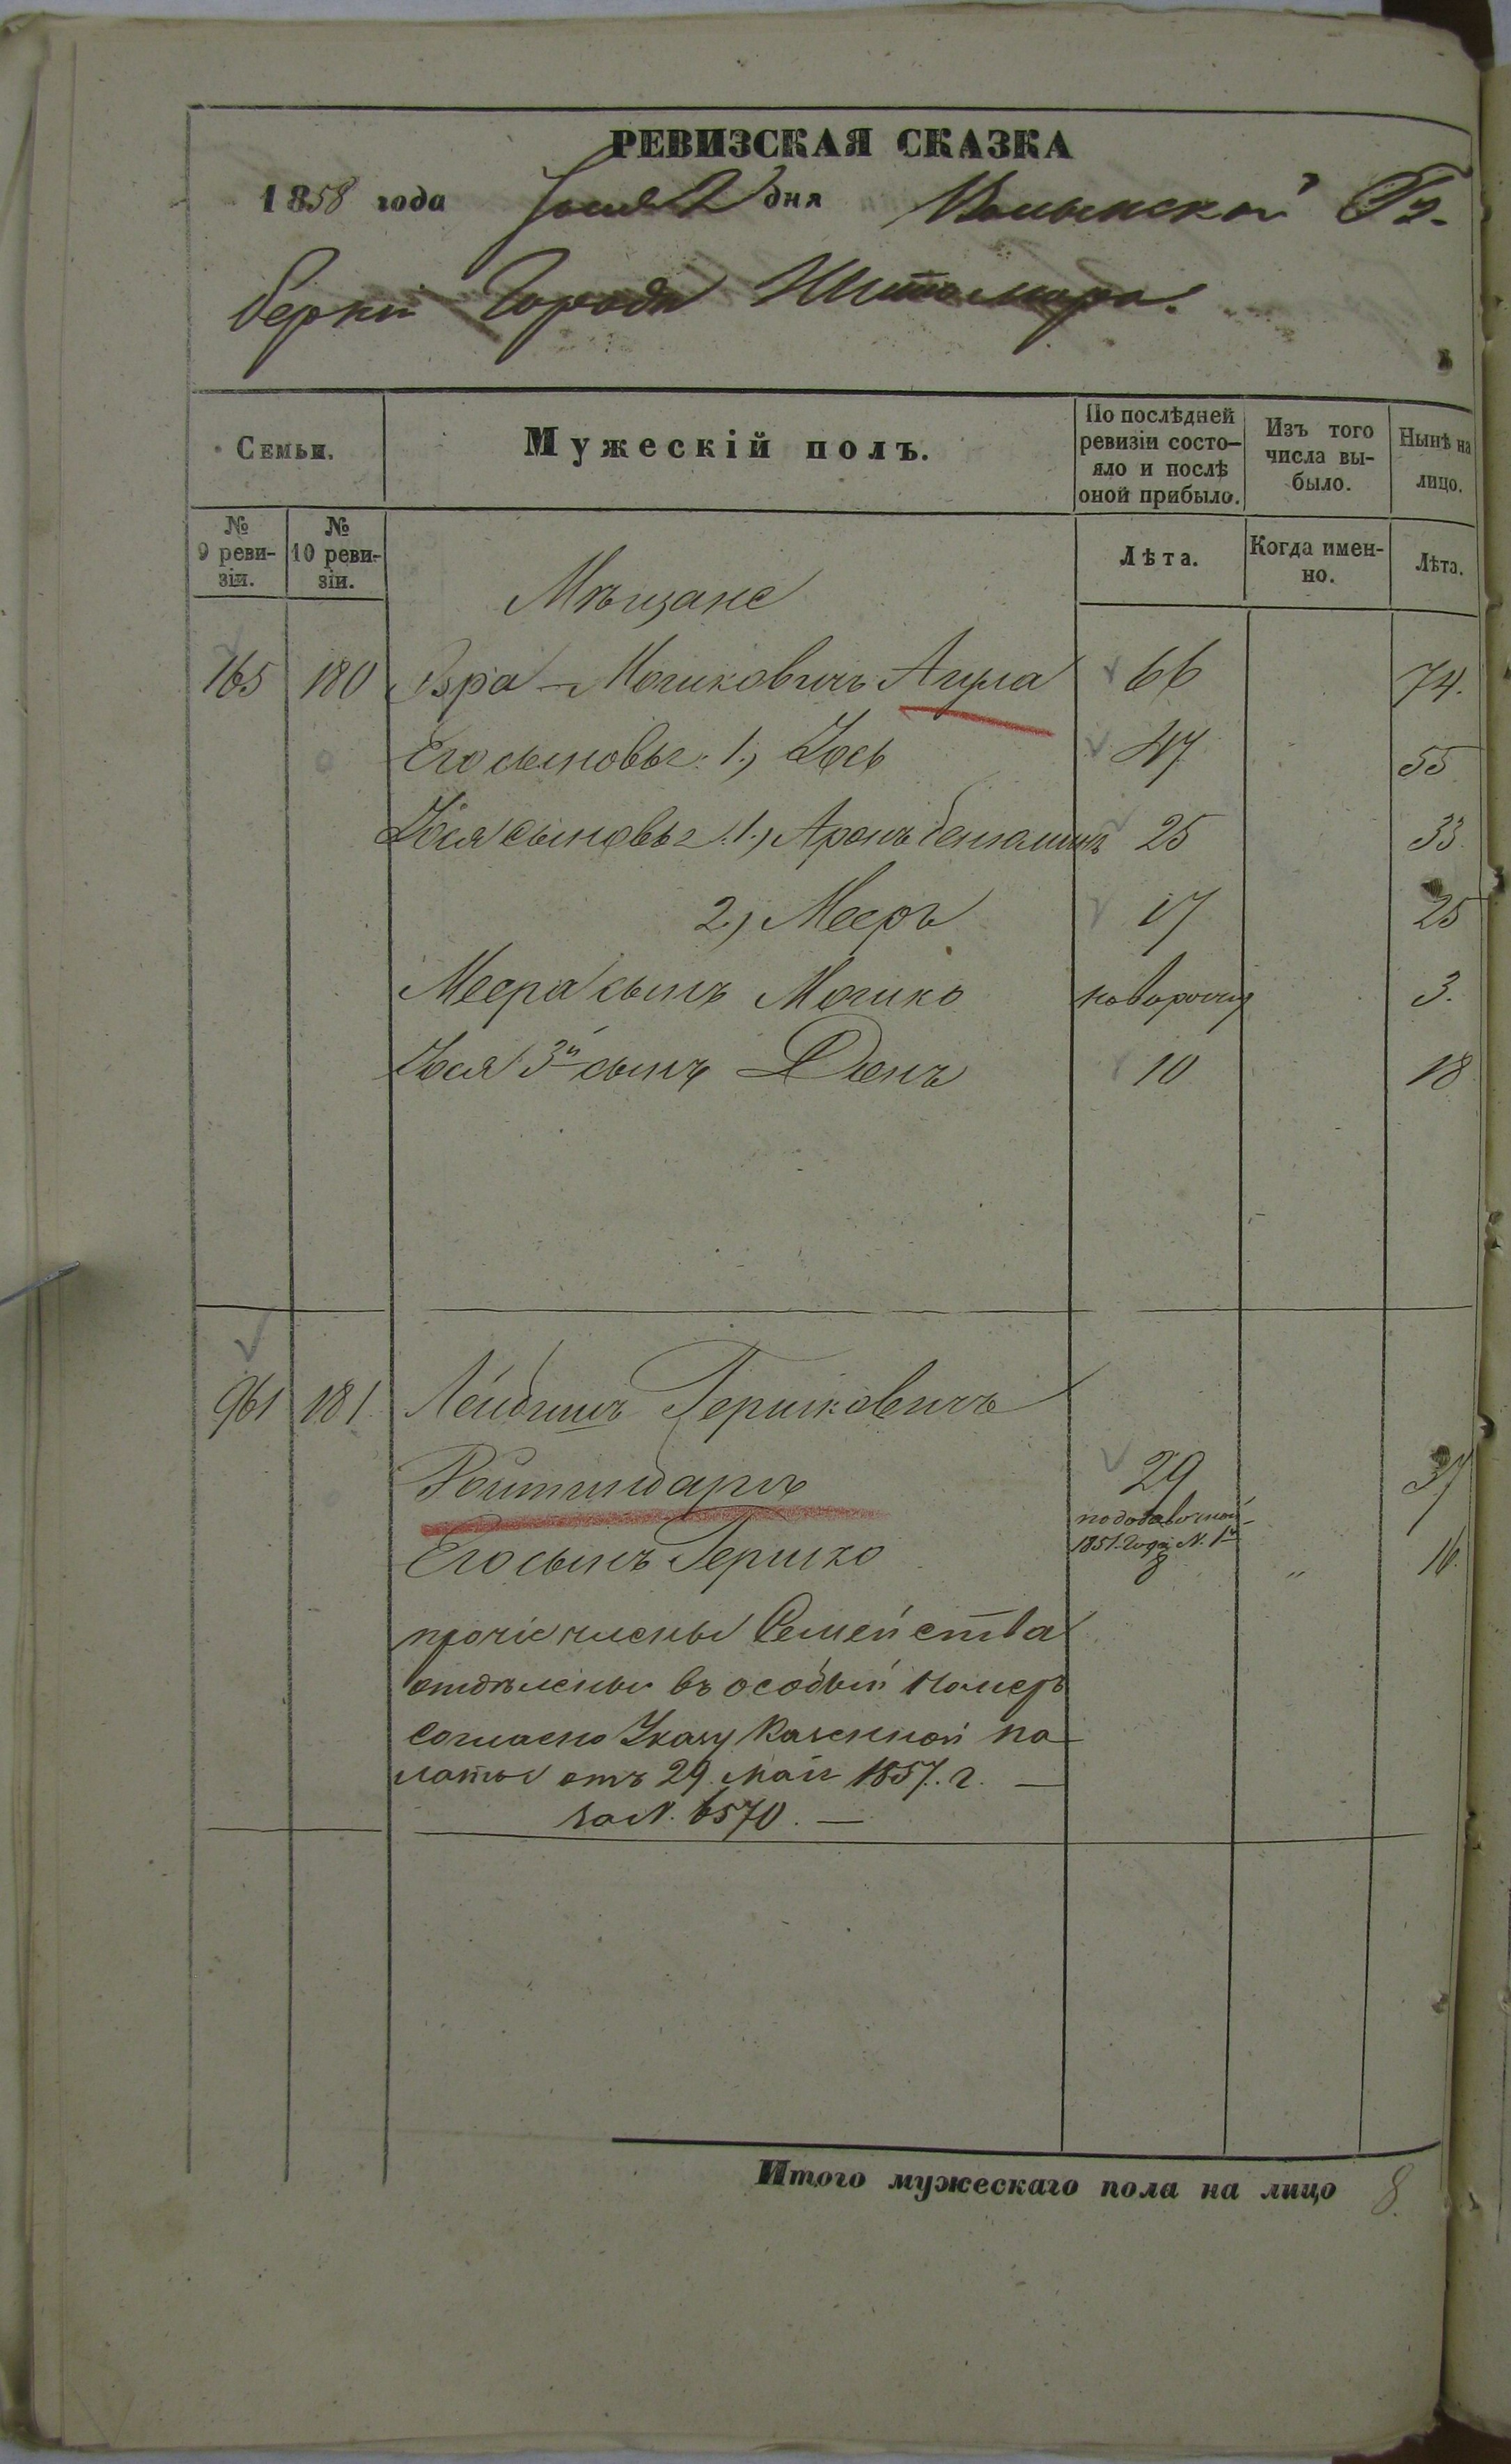 РЕВИЗСКАЯ СКАЗКА
1858 года Іюня 2 дня Волынской Гу-
берніи Города Житомира.
Семьи.
Мужескій полъ.
По послѣдней ревизіи состо-яло и послѣ оной прибыло.
Изъ того числа вы-было.
Нынѣ на лицо.
№ 9 реви-зіи.
№ 10 реви-зіи.
Лѣта.
Когда имен-но.
Лѣта.
Мѣщане
165 180 Мошковичъ 66 74.
Его сыновья: 1.) Іось 47 55
Іося сыновья: 1.) Аронъ Бенiаминъ 25 33
2.) Мееръ 17 25
Меера сынъ Мошко новорожд 3.
Іося 3й сынъ 10 18
961 181 Лейбишъ Гершковичъ
29 37
по добавочной
1851 года N. 1й
Его сынъ Гершко 8 " 16.
прочіе члены Семейства
отдѣлены въ особый Номеръ
согласно Указу Казенной па
латы отъ 29. Мая 1857. г. —
за N. 6570. —
Итого мужескаго пола на лицо 8.